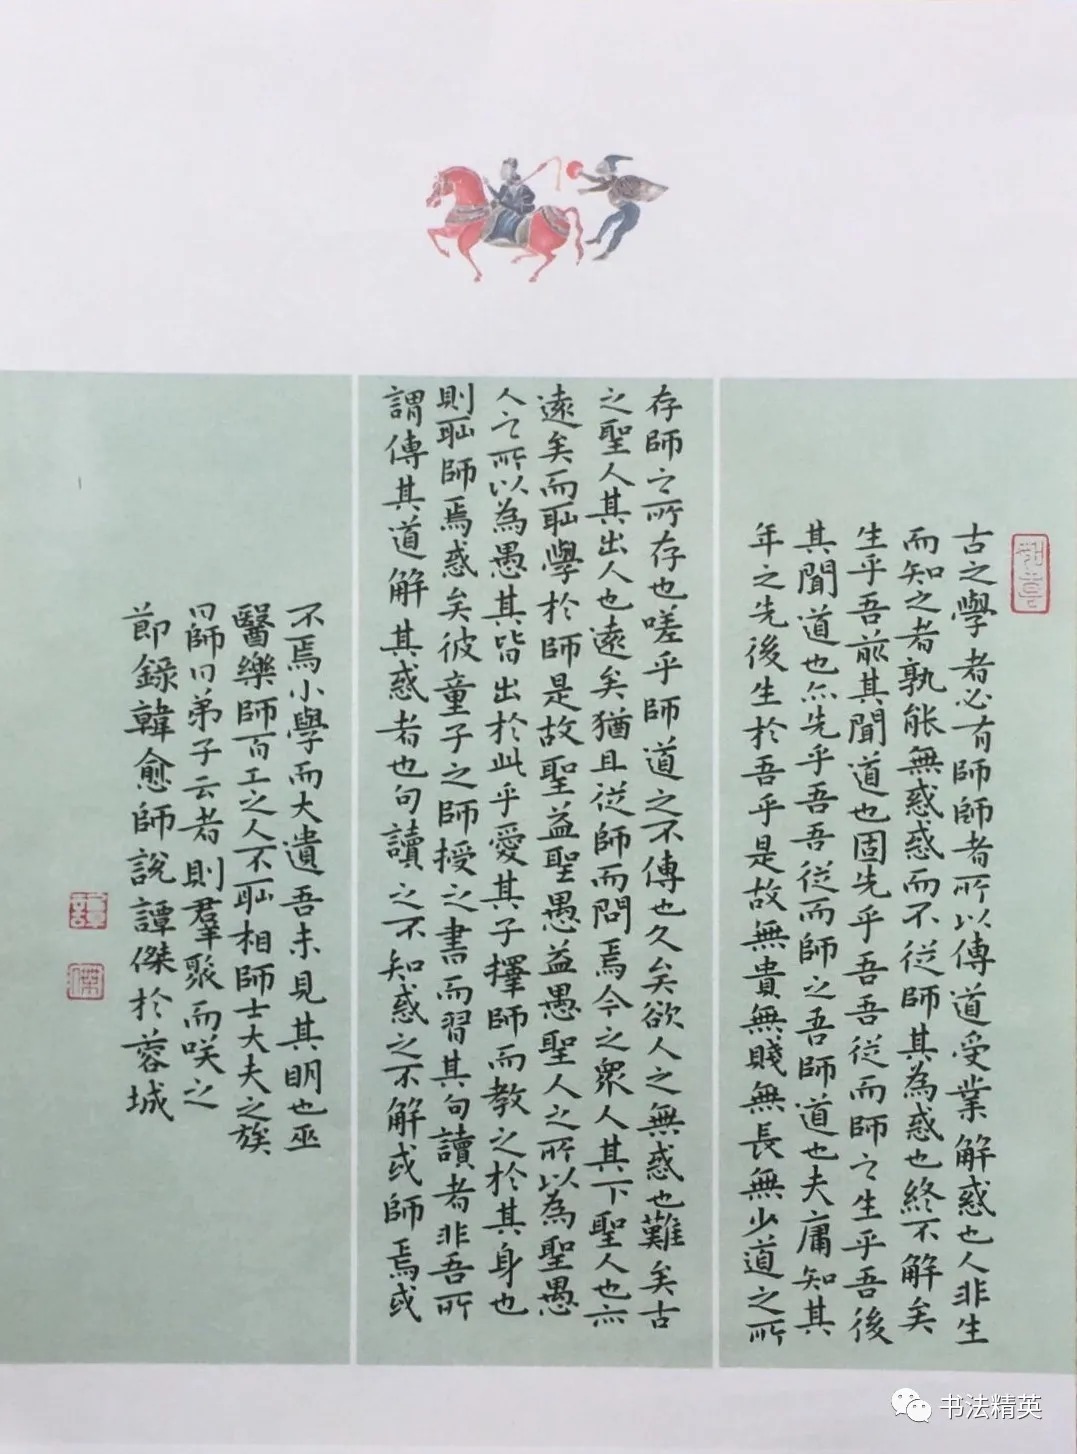 古之學者必有師師者所以傳道受業解惑也人非生
而知之者孰能無惑惑而不從師其為惑也終不解矣
生乎吾前其聞道也固先乎吾吾從而師之生乎吾後
其聞道也亦先乎吾吾從而師之吾師道也夫庸知其
年之先後生於吾乎是故無貴無賤無長無少道之所
存師之所存也嗟乎師道之不傳也久矣欲人之無惑也難矣古
之聖人其出人也遠矣猶且從師而問焉今之眾人其下聖人也亦
遠矣而耻學於師是故聖益聖愚益愚聖人之所以為聖愚
人之所以為愚其皆出於此乎愛其子擇師而教之於其身也
則耻師焉惑矣彼童子之師授之書而習其句讀者非吾所
謂傳其道解其惑者也句讀之不知惑之不解或師焉或
不焉小學而大遺吾未見其明也巫
醫樂師百工之人不耻相師士大夫之族
曰師曰弟子云者則羣聚而咲之
節錄韓愈師說譚傑於蓉城
譚
傑
书法精英